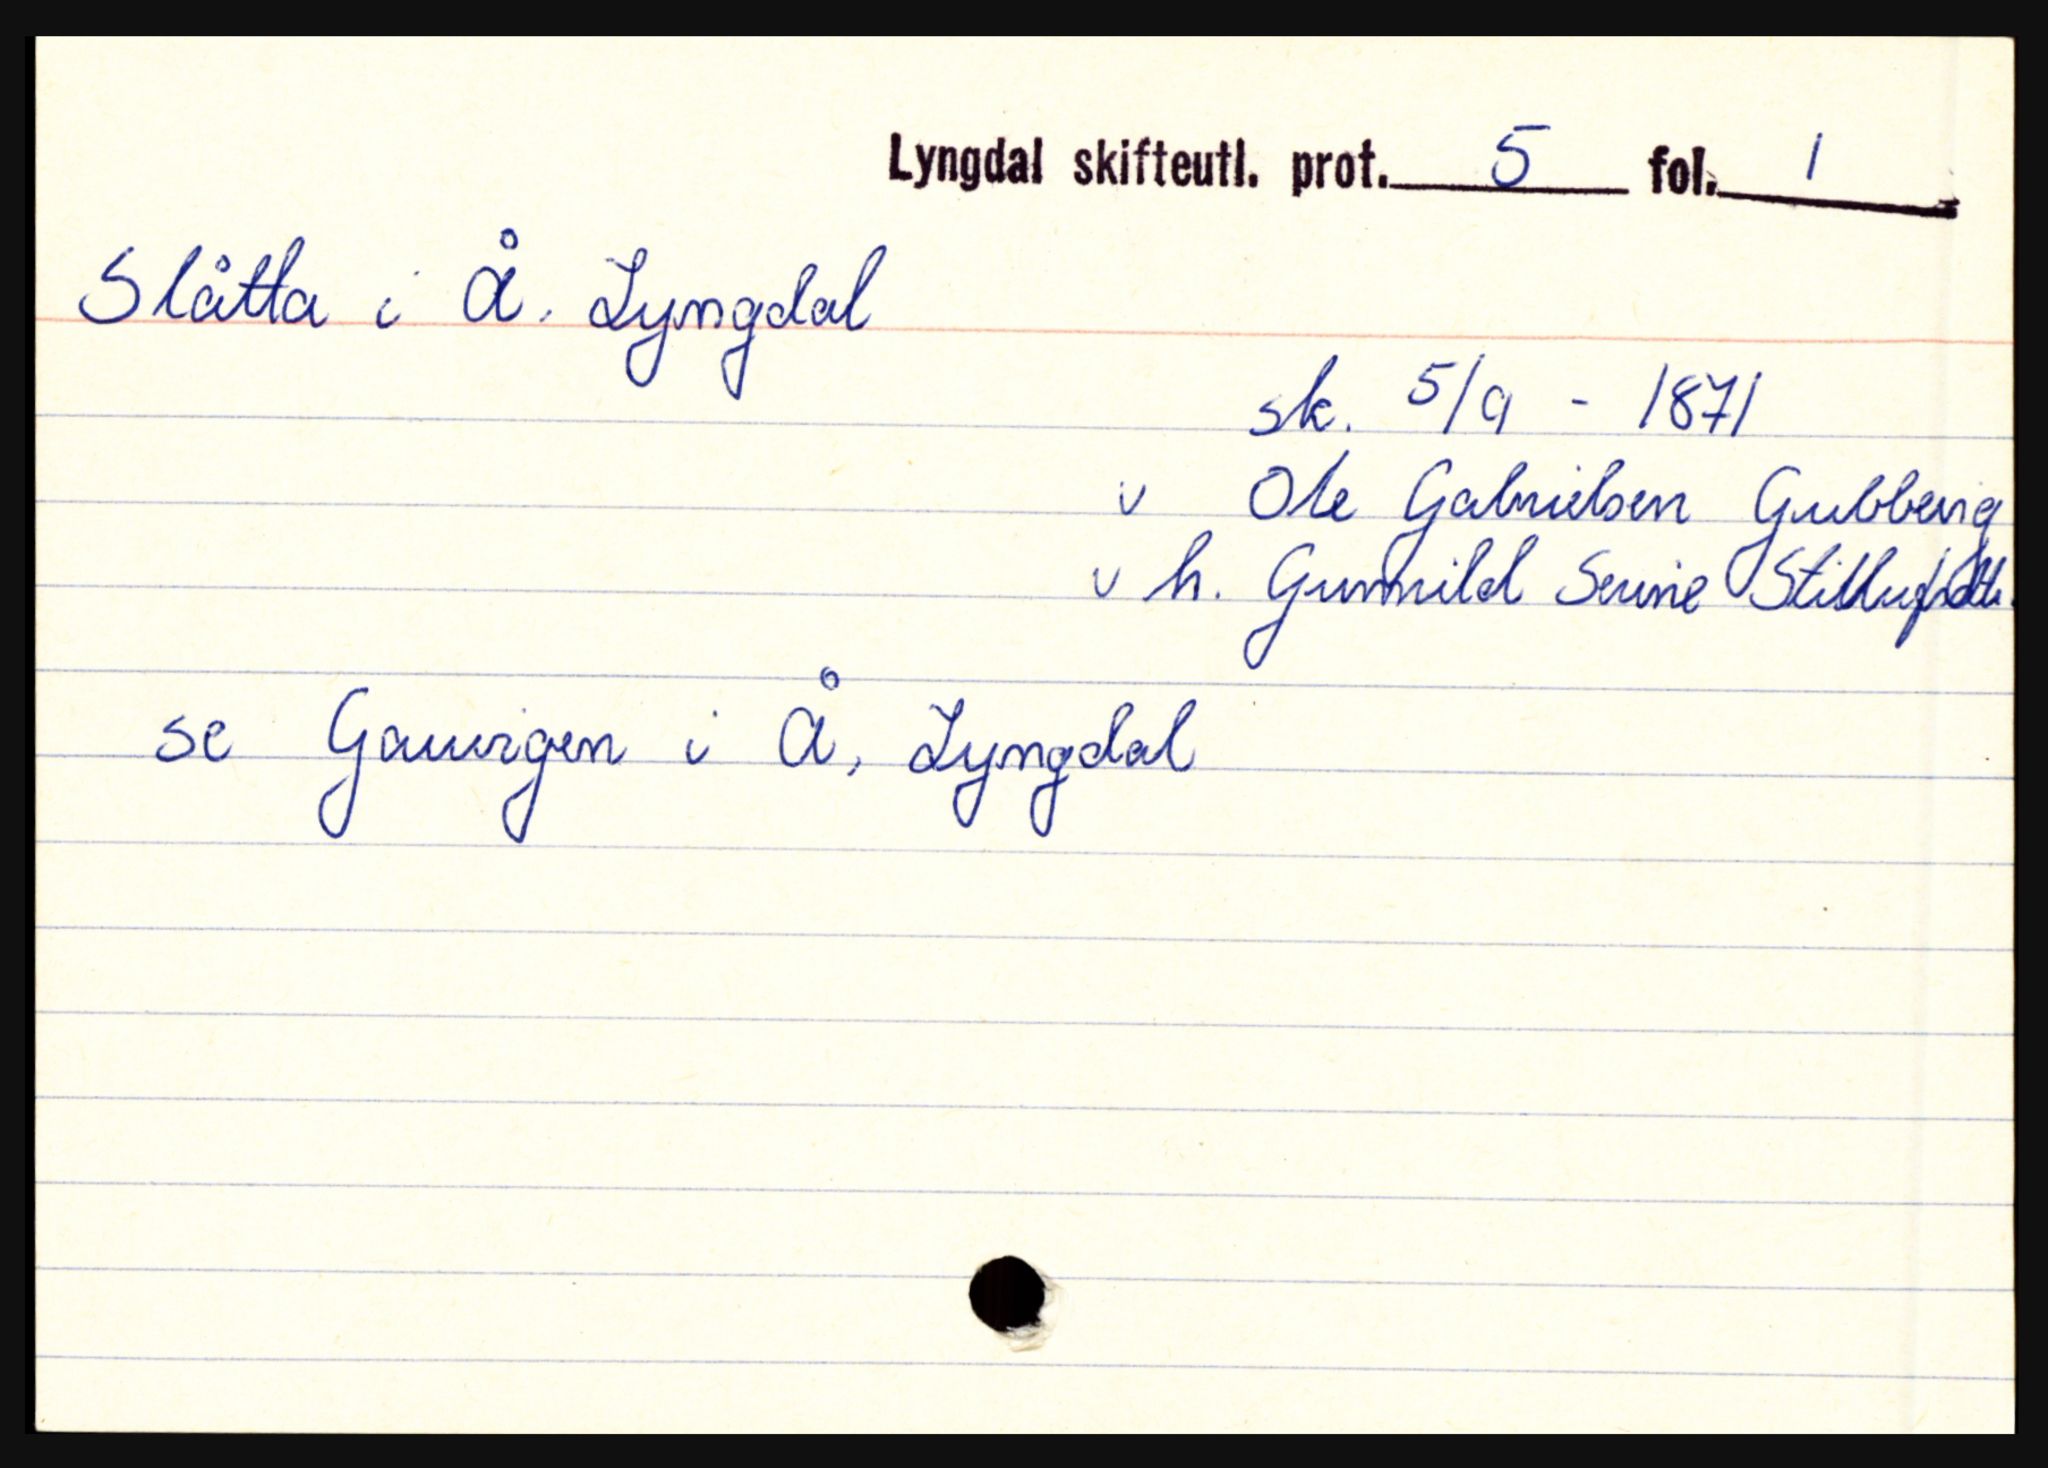 Lyngdal skifteutl. prot. 5 fol. 1
Slåtta i Å. Lyngdal
sk. 5/9 - 1871
v Ole Gabrielsen Gubbevig
v h. Gunnild Serine
se Gauvigen i Å, Lyngdal